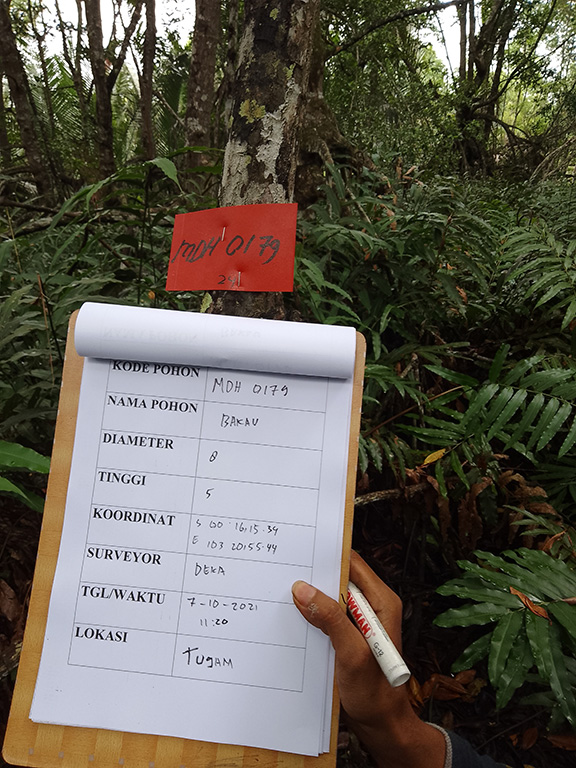 MDH 0179
291
KODE POHON MDH 0179
NAMA POHON BAKAU
DIAMETER 8
TINGGI 5
KOORDINAT S 00 16.15.34
E 103 20.55.44
SURVEYOR DEKA
TGL/WAKTU 7-10-2021
11:20
LOKASI TUGAM
SNOWMAN G-12